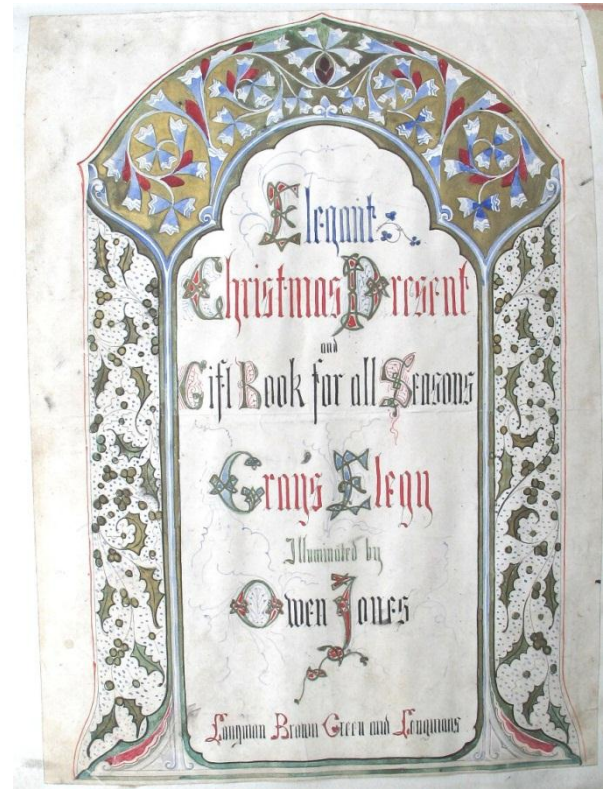 Elegant
Christmas Present
and
Gift Book for all Seasons
Gray's Elegy
Illuminated by
Owen Jones
Longman Brown Green and Longmans